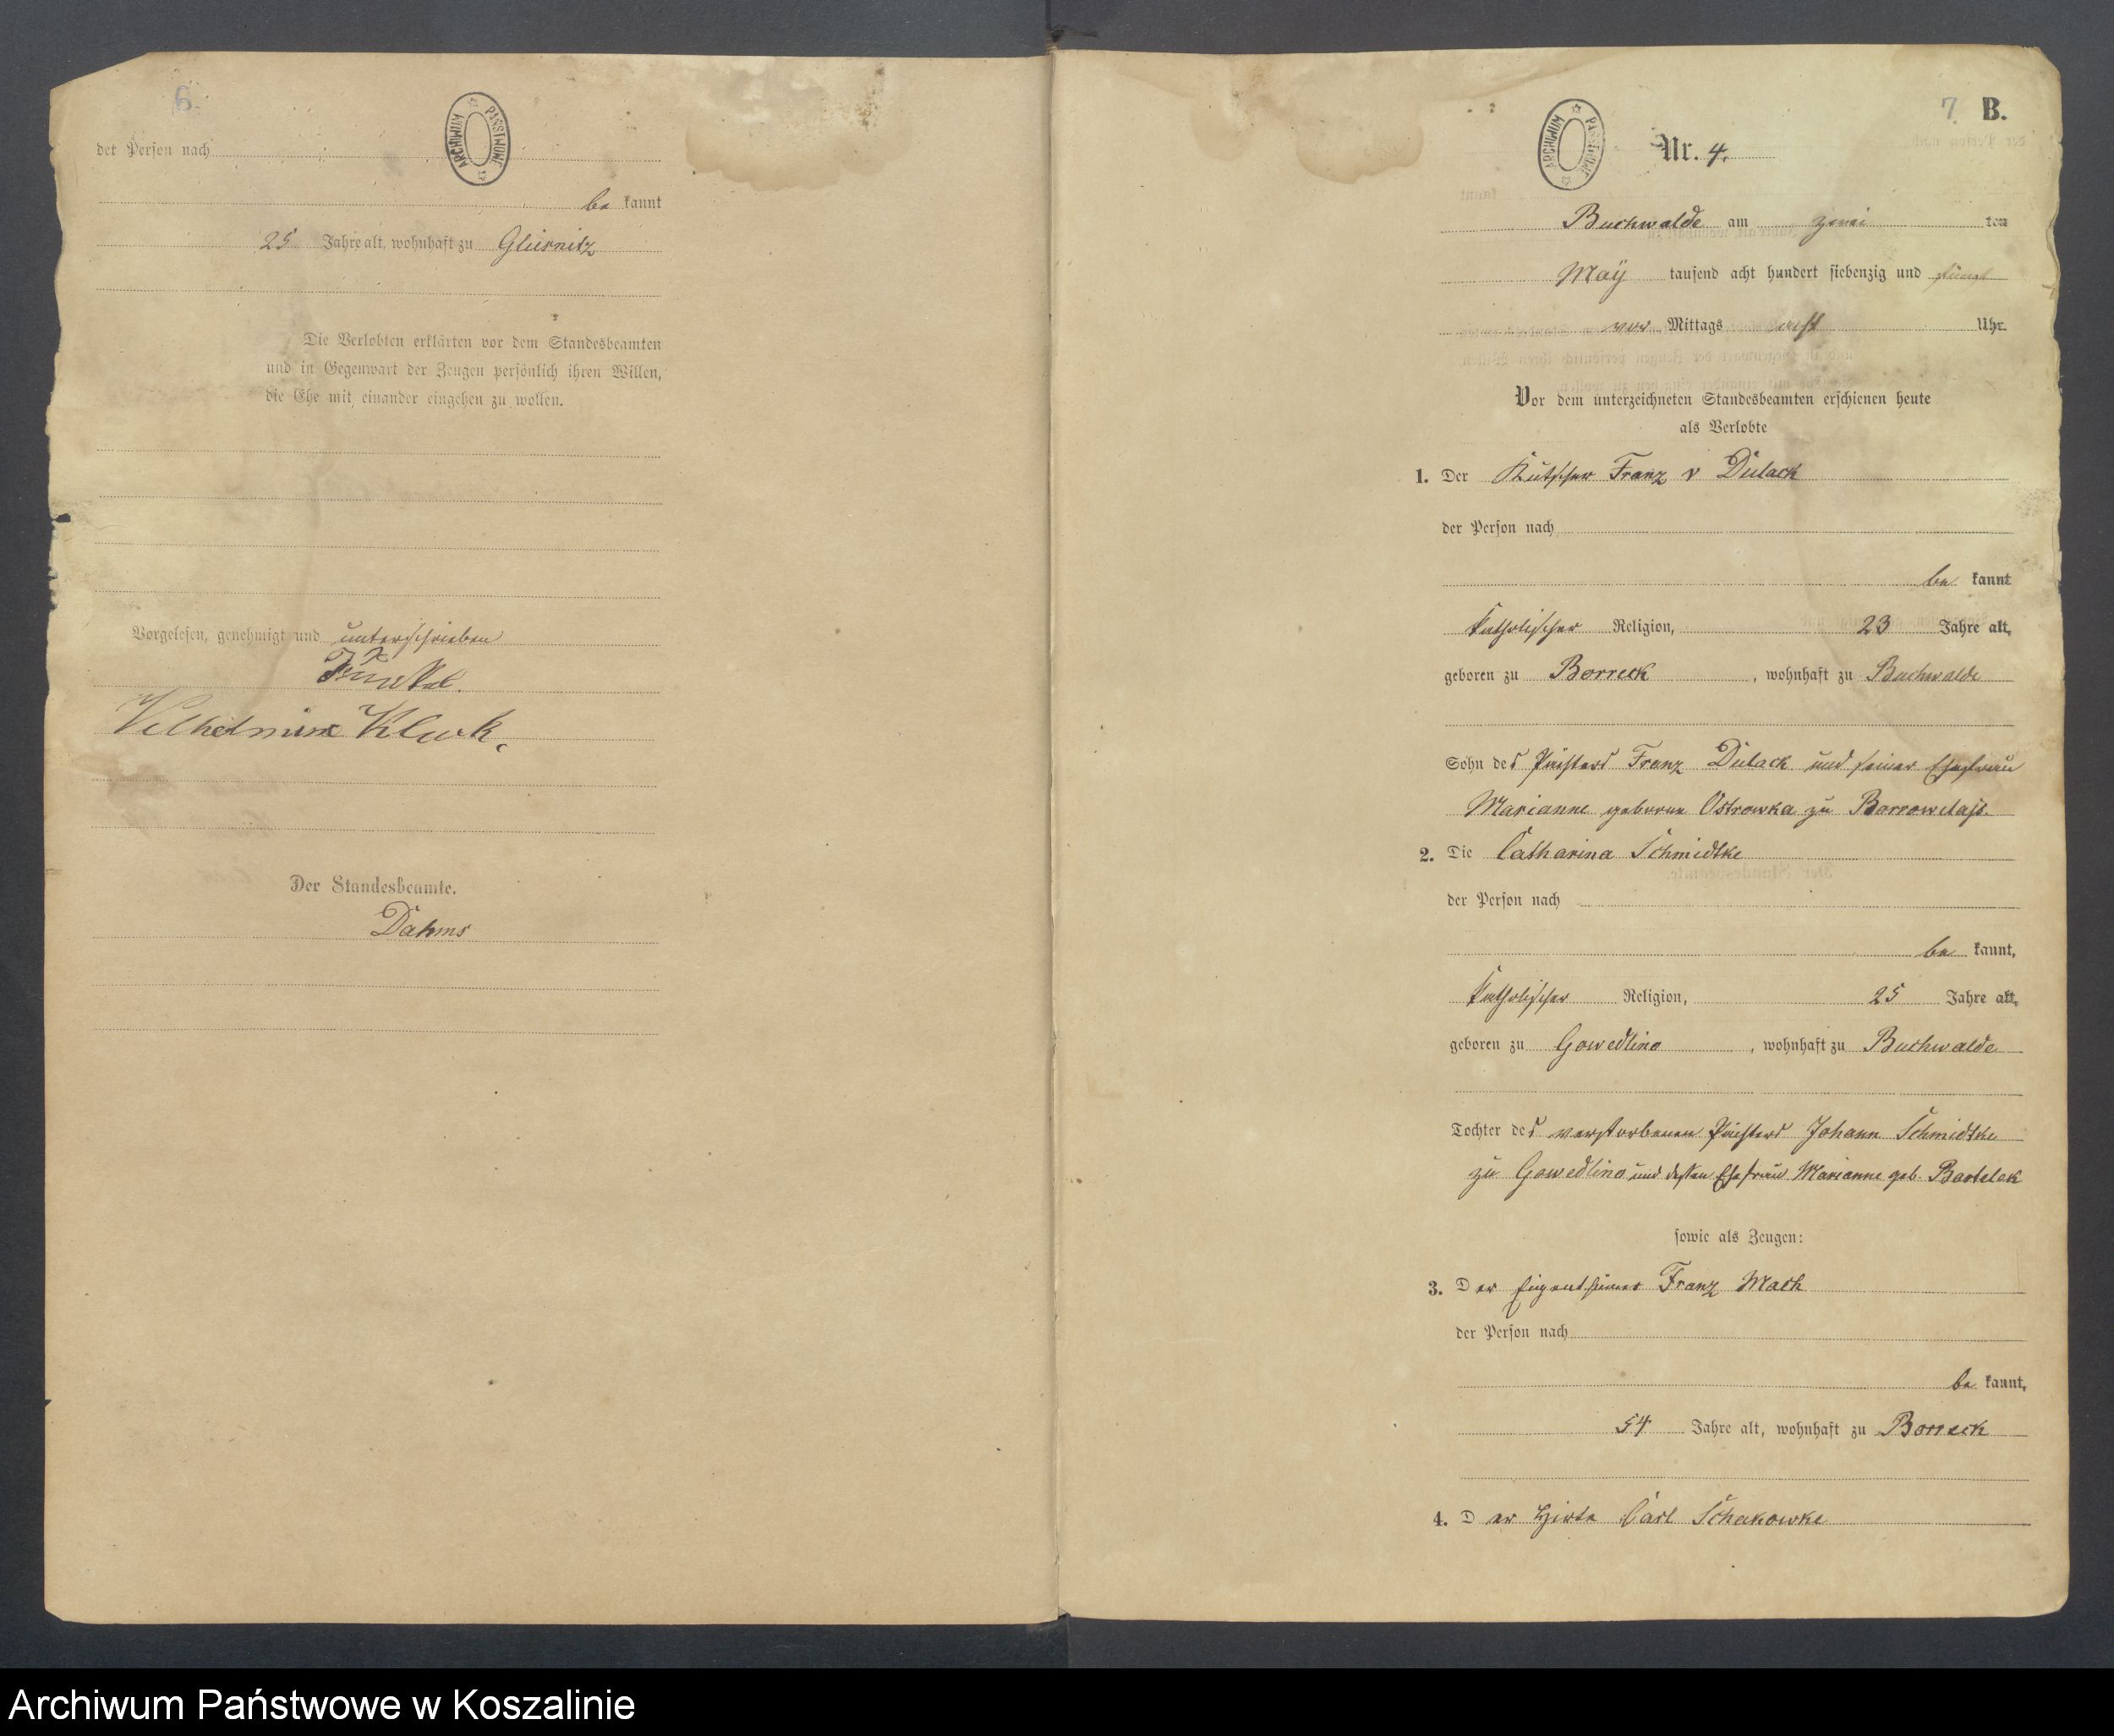 6.
ARCHIWUM PAŃSTWOWE
der Person nach
be kannt
25 Jahre alt, wohnhaft zu
Die Verlobten erklärten vor dem Standesbeamten
und in Gegenwart der Zeugen persönlich ihren Willen,
die Ehe mit einander eingehen zu wollen.
Vorgelesen, genehmigt und unterschrieben
Wilhelmine
Der Standesbeamte.
Dahms
7. B.
ARCHIWUM PAŃSTWOWE
Nr. 4.
Buchwalde am zwei ten
May tausend acht hundert siebenzig und fünf
vor Mittags acht Uhr.
Vor dem unterzeichneten Standesbeamten erschienen heute
als Verlobte
1. Der Kutscher Franz v Dulack
der Person nach
be kannt
katholischer Religion, 23 Jahre alt,
geboren zu Borreck, wohnhaft zu Buchwalde
Sohn des Franz Dulack und seiner Ehefrau
Marianne geborne Ostrowka zu
2. Die Catharina Schmidtke
der Person nach
be kannt,
katholischer Religion, 25 Jahre alt,
geboren zu Gowedlino, wohnhaft zu Buchwalde
Tochter des verstorbenen Johann Schmidtke
zu Gowedlino und dessen Ehefrau Marianne geb. Bartelak
sowie als Zeugen:
3. Der Eigenthümer Franz Mach
der Person nach
be kannt,
54 Jahre alt, wohnhaft zu Borreck
4. Der Hirte Carl Schakowke
Archiwum Państwowe w Koszalinie